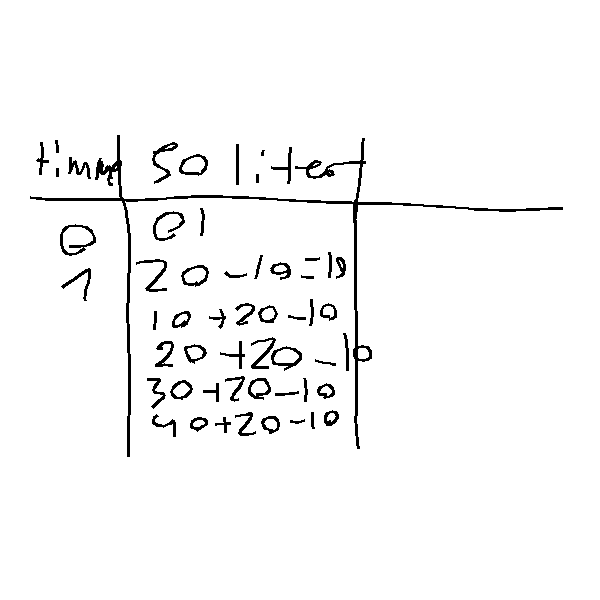 timme 50 liter
0 0 l
1 20-10=10
10+20-10
20+20-10
30+20-10
40+20-10